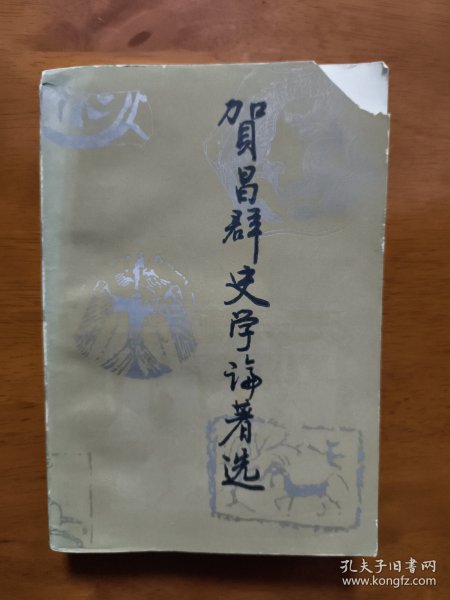 賀昌群史学论著选
孔夫子旧书网
www.kongfz.com